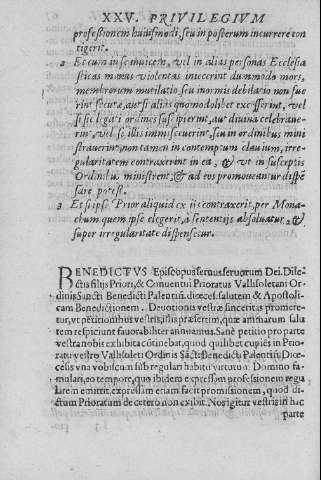 XXV. PRIVILEGIVM
professionem huiusmodi, seu in posterum incurrere con
tigerit.
2 Et cum in seinuicem, vel in alias personas Ecclesia
sticas manus violentas iniecerint dummodo mors,
membrorum mutilatio, seu inormis debilitatio non fue
rint secutæ, aut si alias quomodolibet excesserint, vel
se sic ligati ordines susceperint, aut diuina celebraue-
rint, vel se illis immiscuerint, seu in ordinibus mini
strauerint, non tamen in contemptum clauium, irre-
gularitatem contraxerint in ea, & vt in susceptis
Ordinibus ministrent, & ad eos promoueantur dispē
sare potest.
3 Et si ipse Prior aliquid ex ijs contraxerit, per Mona-
chum quem ipse elegerit, à sententijs absoluatur, &
super irregularitate dispensetur.
BENEDICTVS Episcopus seruus seruorum Dei. Dile-
ctis filijs Priori, & Conuentui Prioratus Vallisoletani Or-
dinis Sancti Benedicti Palentin. diœces. salutem & Apostoli-
cam Benedictionem. Deuotionis vestræ sinceritas promere-
tur, vt petitionibus vestris, illis præsertim, quæ animarum salu
tem respiciunt fauorabiliter annuamus. Sanè petitio pro parte
vestra nobis exhibita cōtinebat, quod quilibet cupiēs in Prio-
ratu vestro Vallisoleti Ordinis Sācti Benedicti Palentin. Diœ-
cesis vna vobiscum sub regulari habitu virtutum Domino fa-
mulari, eo tempore, quo ibidem expressam professionem regu
larem emittit, expressam etiam facit promissionem, quod di-
ctum Prioratum de cetero non exibit. Nos igitur vestris in hac
parte